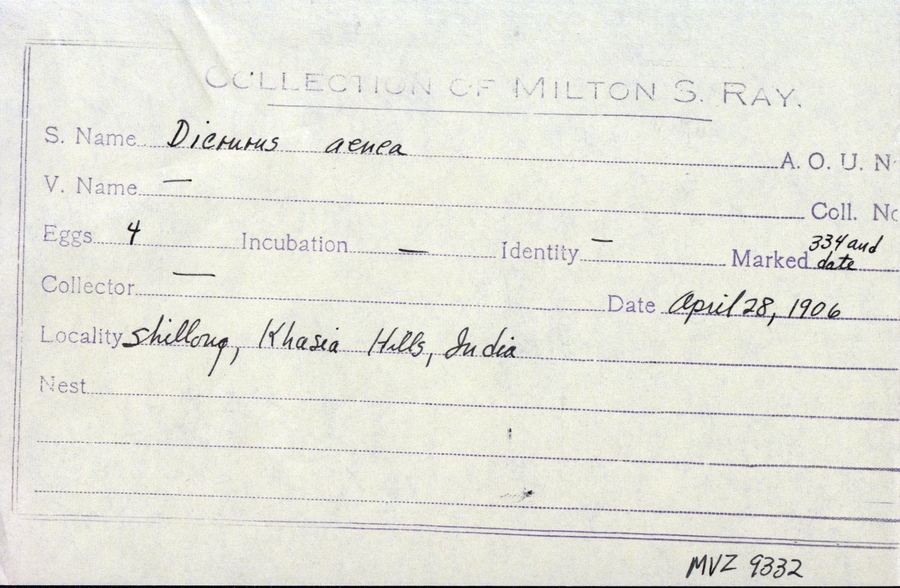 COLLECTION OF MILTON S. RAY.
S. Name Dicrurus aenea A. O. U. N
V. Name — Coll. No
Eggs 4 Incubation — Identity — Marked 334 and date
Collector — Date April 28, 1906
Locality Shillong, Khasia Hills, India
Nest
MVZ 9332